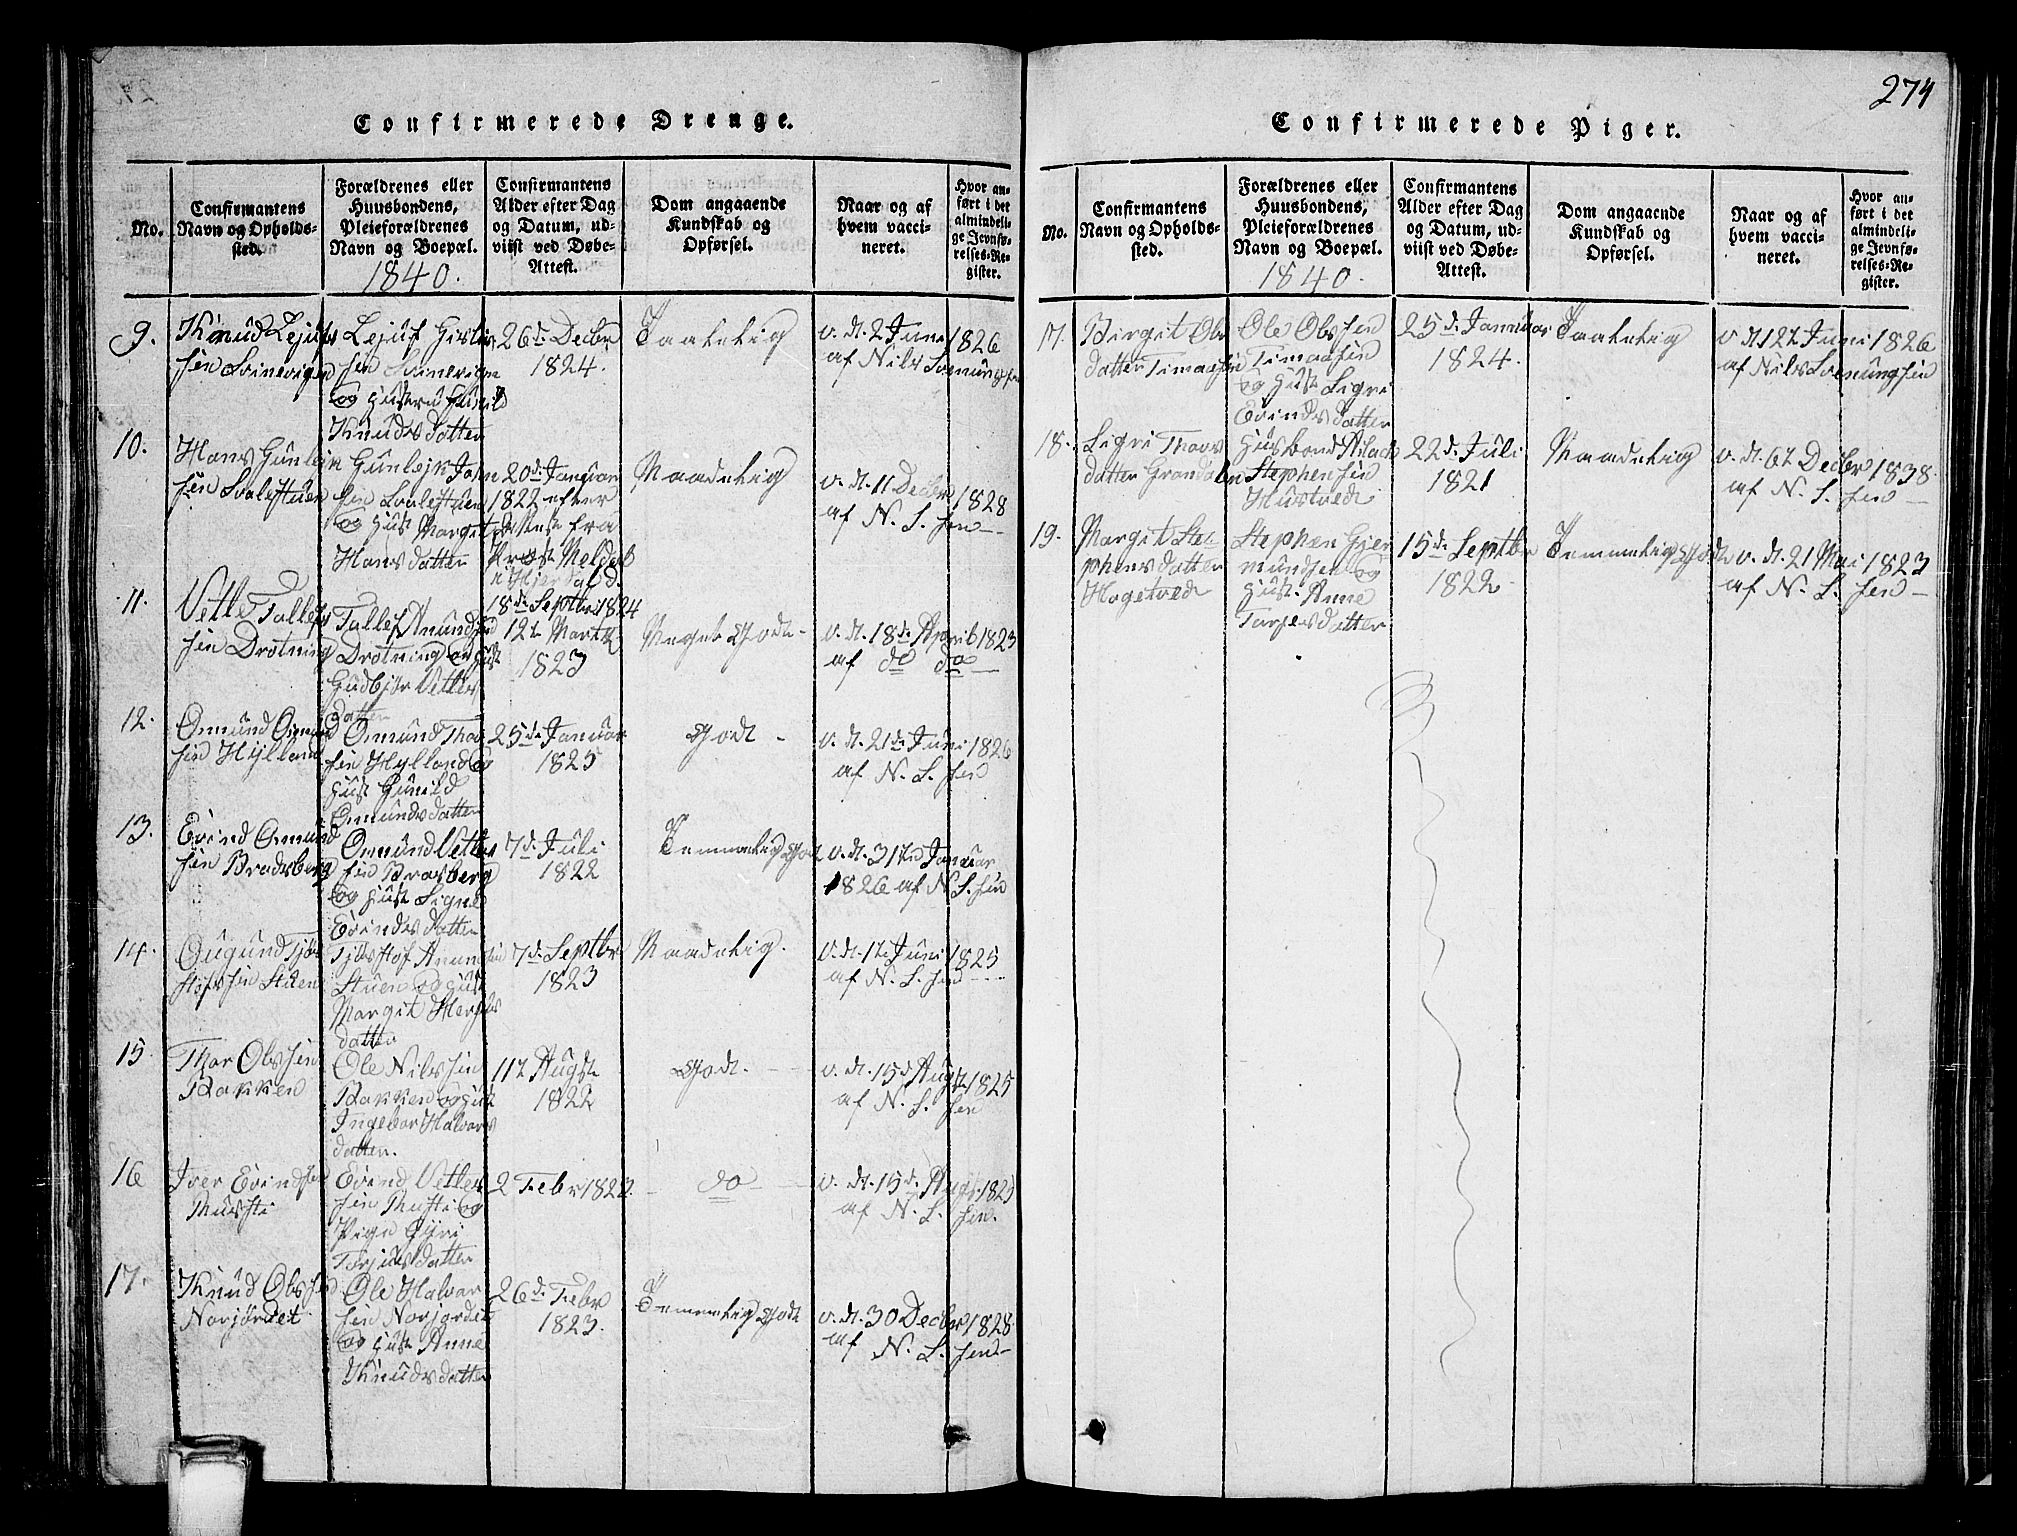 274
Confirmerede Drenge.
No.
Confirmantens
Navn og Opholds-
sted.
Forældrenes eller
Huusbondens,
Pleieforældrenes
Navn og Boepæl.
1840.
Confirmantens
Alder efter Dag
og Datum, ud-
viist ved Døbe-
Attest.
Dom angaaende
Kundskab og
Opførsel.
Naar og af
hvem vacci-
neret.
Hvor an-
ført i det
almindeli-
ge Jevnfø-
relses-Re-
gister.
9.
Knud Lejufs
sen Svinevigen
Lejuf
sen Svinevigen
og Hustru Gunild
Knudsdatter
26de Decbr
1824.
Taalelig
v. d. 2 Juni 1826
af Nils Svenungsen
10.
Hans Gunlejk
sen Svalestuen
Gunlejk John
sen Svalestuen
og Hust Margit
Hansdatter
20de Januar
1822 efter
Attest fra
Prest
Hjerdal d.
18de Septbr 1824
Maadelig
v. d. 11 Decbr 1828
af N. S. sen
11.
Vetle Tallefs
sen Drotning
Tallef Anundsen
Drotning og Hust
Gudbjør Vetles
datter
12t Martz
1823
Meget Godt
v. d. 18de April 1823
af do do
12.
Omund Omund
sen Hylland
Omund Thor
sen Hylland og
Hust Gunild
Omundsdatter
25de Januar
1825
Godt
v. d. 21de Juni 1826
af N. S. sen
13.
Evind Omund
sen Bradsberg
Omund Vetles
sen Brasberg
og Hust Signe
Evindsdatter
7de Juli
1822
Temmelig Godt
v. d. 31te Januar
1826 af N. S. sen
14.
Augund Tjøs
stofssen Stuen
Tjøsstof Anunsen
Stuen og Hust
Margit
datter
7de Septbr
1823
Maadelig.
v. d. 1te Juni 1825
af N. S. sen
15
Thor Olssen
Bakken
Ole Nilssen
Bakken og Hust
Ingebor Halvors
datter.
11t Augst
1822
Godt.
v. d. 15de Augst 1825
af N. S. sen
16
Iver Evindsen
Evind Vetles
sen
Pige Gyri
Torjusdatter
2 Febr
do
v. d. 15de Augst 1825
af N. S. sen.
17.
Knud Olssen
Norjordet
Ole Halvor
sen Norjordet
og Hust Anne
Knudsdatter
26de Febr
1823.
Temmelig Godt
v. d. 30 Decbr 1828
af N. S. sen
Confirmerede Piger.
No.
Confirmantens
Navn og Opholds-
sted.
Forældrenes eller
Huusbondens,
Pleieforældrenes
Navn og Boepæl.
1840.
Confirmantens
Alder efter Dag
og Datum, ud-
viist ved Døbe-
Attest.
Dom angaaende
Kundskab og
Opførsel.
Naar og af
hvem vacci-
neret.
Hvor an-
ført i det
almindeli-
ge Jevnfø-
relses-Re-
gister.
17.
Birgit Ols
datter
Ole Olssen
og Hust Sigri
Evindsdatter
25de Januar
1824.
Taalelig
v d 12t Juni 1826
af Nils Svenungsen
18.
Sigri Thors
datter
Husbond Aslack
Stephensen
Hustvedt
22de Juli
1821
Maadelig
v. d. 6t Decbr 1838.
af N. S. sen
19.
Margit Ste-
phensdatter
Hogetvedt
Stephen Gjer
mundsen og
Hust. Anne
datter
15de Septbr
1822
Temmelig Godt
v. d. 21 Mai 1823
af N. S. sen